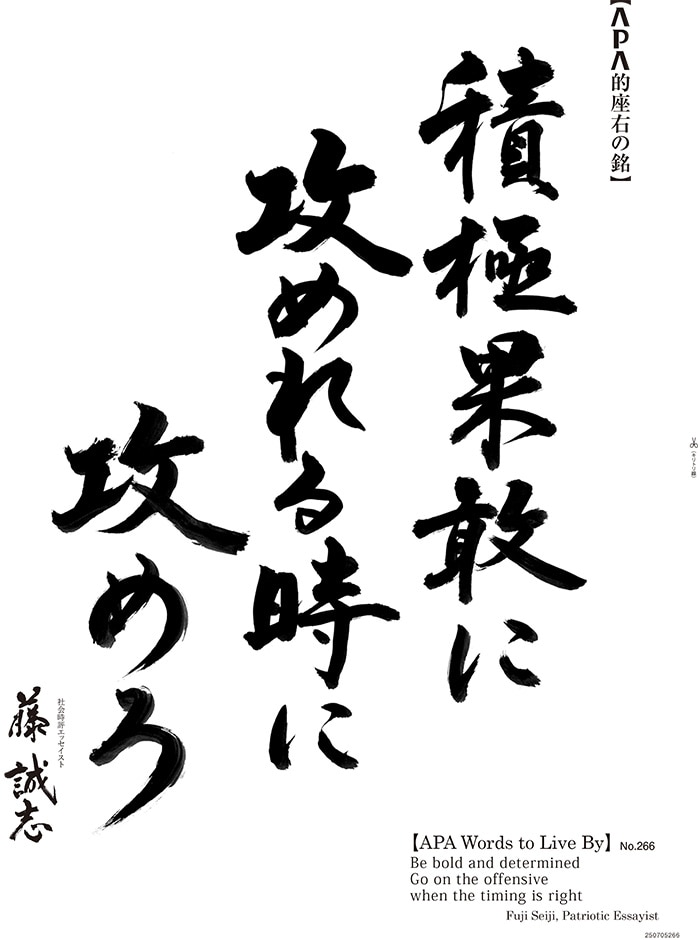 【APA的座右の銘】
積極果敢に
攻めれる時に
攻めろ
社会時評エッセイスト
藤誠志
(キリトリ線)
【APA Words to Live By】 No.266
Be bold and determined
Go on the offensive
when the timing is right
Fuji Seiji, Patriotic Essayist
250705266